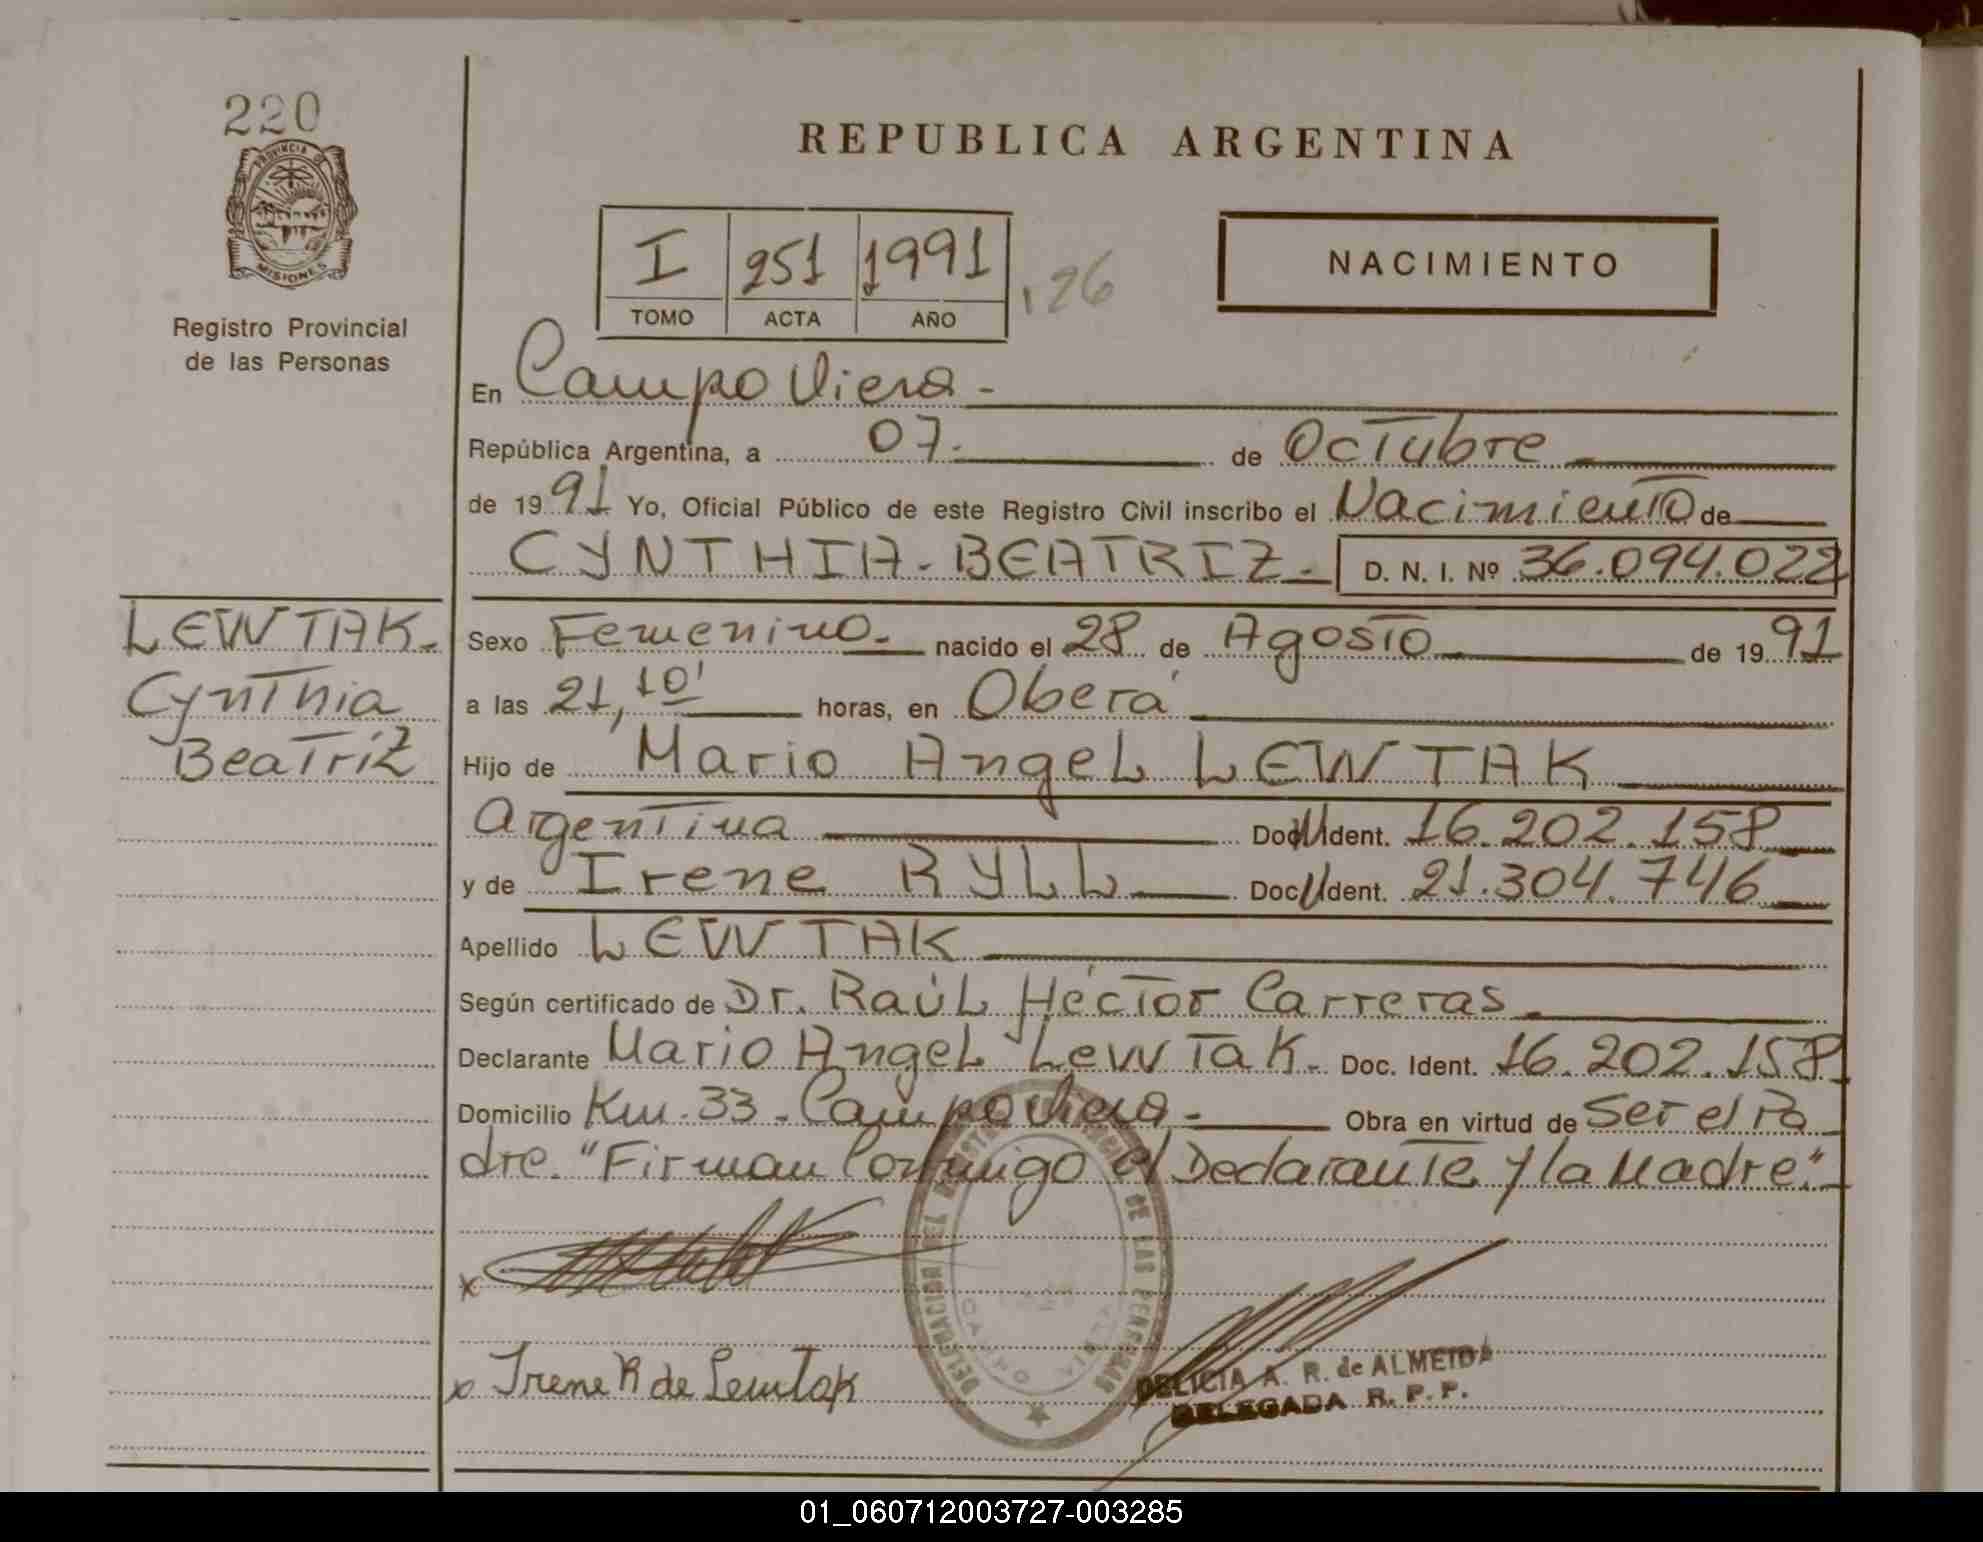 220
PROVINCIA DE
MISIONES
Registro Provincial
de las Personas
REPUBLICA ARGENTINA
I 251 1991 126
TOMO ACTA AÑO
NACIMIENTO
En Campo Viera -
República Argentina, a 07- de Octubre
de 1991 Yo, Oficial Público de este Registro Civil inscribo el Nacimiento de
CYNTHIA-BEATRIZ- D. N. I. Nº 36.094.022
LEWTAK-
Cynthia
Beatriz
Sexo Femenino- nacido el 28 de Agosto de 1991
a las 21,10' horas, en Oberá
Hijo de Mario Angel LEWTAK
Argentina Doc. Ident. 16.202.158
y de Irene RYLL Doc. Ident. 21.304.746
Apellido LEWTAK
Según certificado de Dr. Raúl Héctor Carreras
Declarante Mario Angel Lewtak- Doc. Ident. 16.202.158
Domicilio Km. 33 - Campo Viera - Obra en virtud de Ser el Pa
dre. "Firman Conmigo el Declarante y la Madre."
x
x Irene R de Lewtak
DELEGACION DEL REGISTRO PROVINCIAL DE LAS PERSONAS
CAMPO VIERA
DELICIA A. R. de ALMEIDA
DELEGADA R. P. P.
01_060712003727-003285